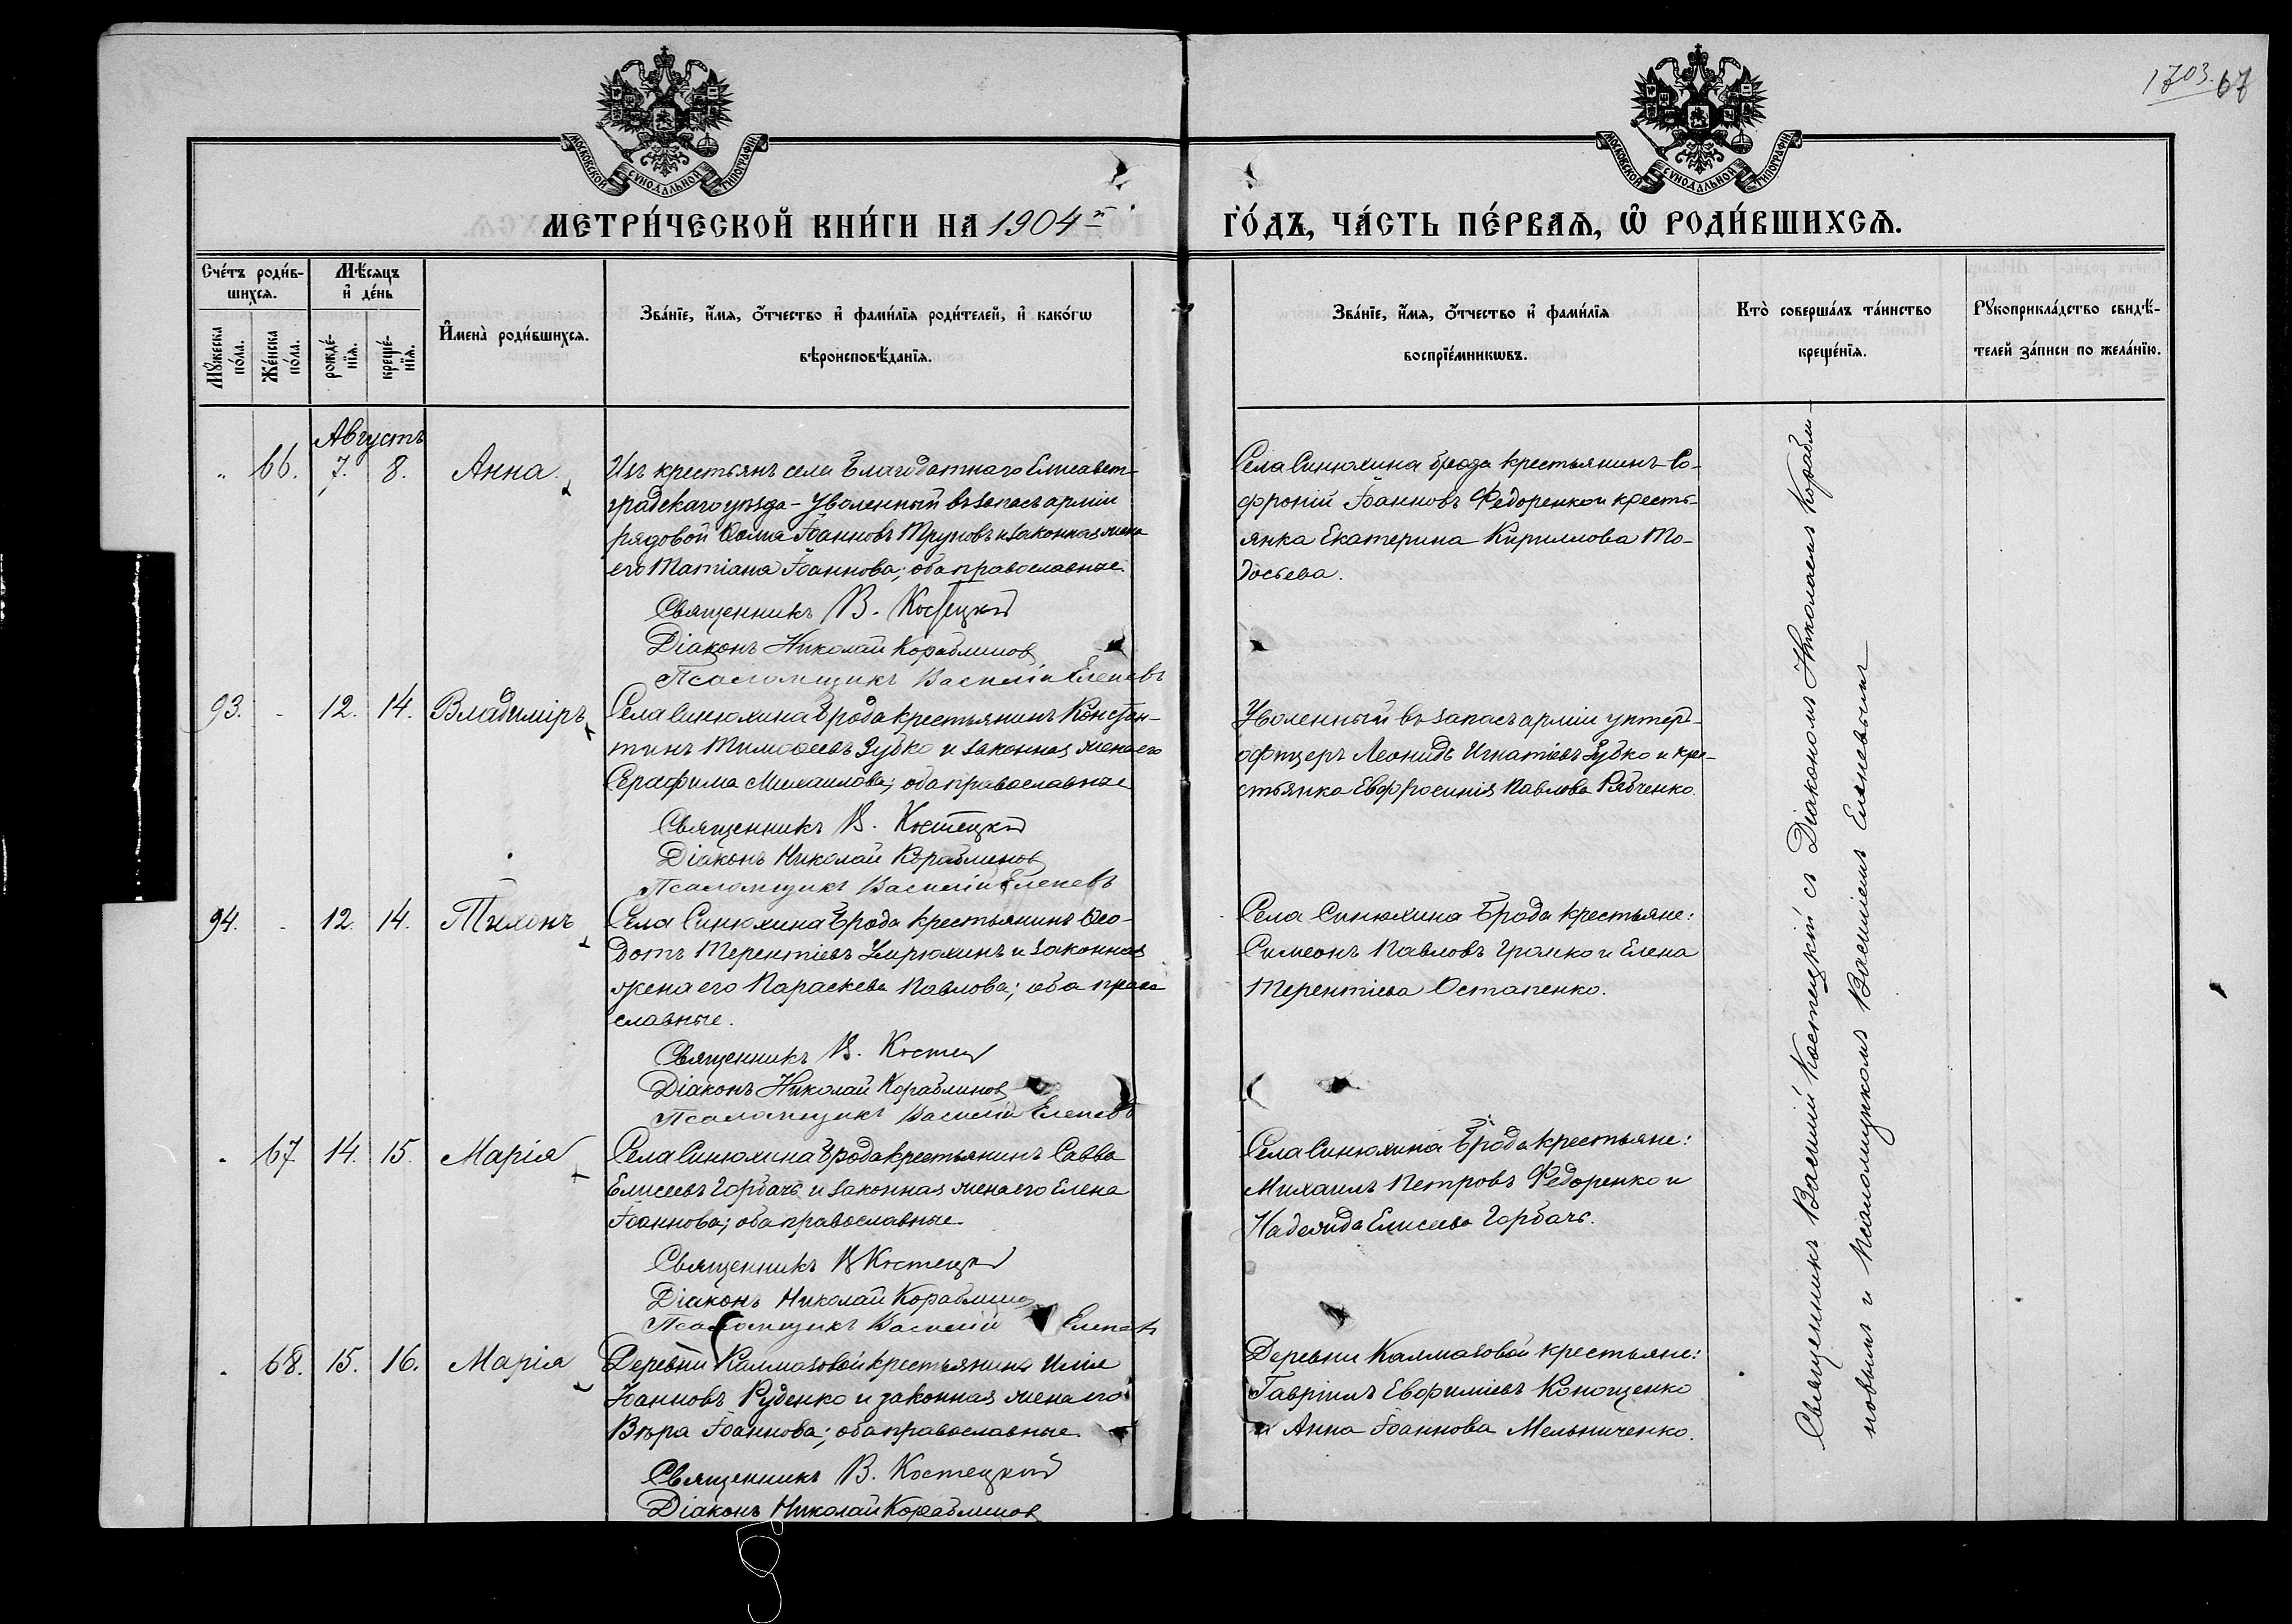 1703. 67
МОСКОВСКОЙ СУНОДАЛЬНОЙ ТИПОГРАФІИ
МОСКОВСКОЙ СУНОДАЛЬНОЙ ТИПОГРАФІИ
МЕТРИ́ЧЕСКОЙ КНИ́ГИ НА 1904й
ГО́ДЪ, ЧА́СТЬ ПЕ́РВАѦ, Ѡ҆ РОДИ́ВШИХСѦ.
Сче́тъ роди́в-
шихсѧ.
Мѣ́сѧцъ
и҆ де́нь
Мꙋ́жеска
по́ла.
Же́нска
по́ла.
рожде́-
нїѧ.
креще́-
нїѧ.
И҆мена̀ роди́вшихсѧ.
Зва́нїе, и҆́мѧ, ѻ҆́тчество и҆ фами́лїѧ роди́телей, и҆ како́гѡ
вѣроисповѣ́данїѧ.
Зва́нїе, и҆́мѧ, ѻ҆́тчество и҆ фами́лїѧ
воспрїе́мникѡвъ.
Кто̀ соверша́лъ та́инство
креще́нїѧ.
Рꙋкоприкла́дство свидѣ́-
телей за́писи по жела́нїю.
Августъ
" 66. 7. 8. Анна
Изъ крестьянъ села Благодатнаго Елисавет-
градскаго уѣзда - Уволенный въ запасъ арміи
рядовой Ѳома Іоанновъ Труновъ и законная жена
его Татіана Іоаннова; оба православные.
Священникъ В. Костецкій
Діаконъ Николай Кораблиновъ
Псаломщикъ Василій Еленевъ
Села Синюхина Брода крестьянинъ Со-
фроній Іоанновъ Федоренко и кресть-
янка Екатерина Кириллова То-
досьева.
93. - 12. 14. Владиміръ
Села Синюхина Брода крестьянинъ Констан-
тинъ Тимоѳеевъ Зубко и законная жена его
Серафима Михаилова; оба православные
Священникъ В. Костецкій
Діаконъ Николай Кораблиновъ
Псаломщикъ Василій Еленевъ
Уволенный въ запасъ арміи унтеръ-
офицеръ Леонидъ Игнатіевъ Зубко и кре-
стьянка Евфросинія Павлова Рябченко.
94. - 12. 14. Тихонъ
Села Синюхина Брода крестьянинъ Ѳео-
дотъ Терентіевъ и законная
жена его Параскева Павлова; оба право
славные.
Священникъ В. Костец
Діаконъ Николай Кораблиновъ
Псаломщикъ Василій Еленевъ
Села Синюхина Брода крестьяне:
Симеонъ Павловъ Громко и Елена
Терентіева Остапенко.
" 67. 14. 15. Марія
Села Синюхина Брода крестьянинъ Савва
Елисеевъ Горбачъ и законная жена его Елена
Іоаннова; оба православные.
Священникъ В Костецкій
Діаконъ Николай Кораблинов
Псаломщикъ Василій Еленевъ
Села Синюхина Брода крестьяне:
Михаилъ Петровъ Федоренко и
Надежда Елисеева Горбачъ.
" 68. 15. 16. Марія
Деревни Калмазовой крестьянинъ Илія
Іоанновъ Руденко и законная жена его
Вѣра Іоаннова; оба православные.
Священникъ В. Костецкій
Діаконъ Николай Кораблиновъ
Деревни Калмазовой крестьяне:
Гавріилъ Евфиміевъ Конощенко
и Анна Іоаннова Мельниченко.
Священникъ Василій Костецкій съ Діакономъ Николаемъ Корабли-
новымъ и Псаломщикомъ Василіемъ Еленевымъ